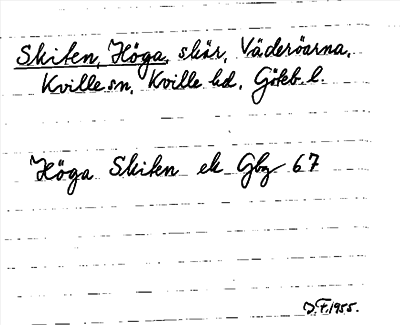 Skiten, Höga, skär, Väderöarna,
Kville sn, Kville hd, Göteb. l.
Höga Skiten ek Gbg 67
J.F. 1955.